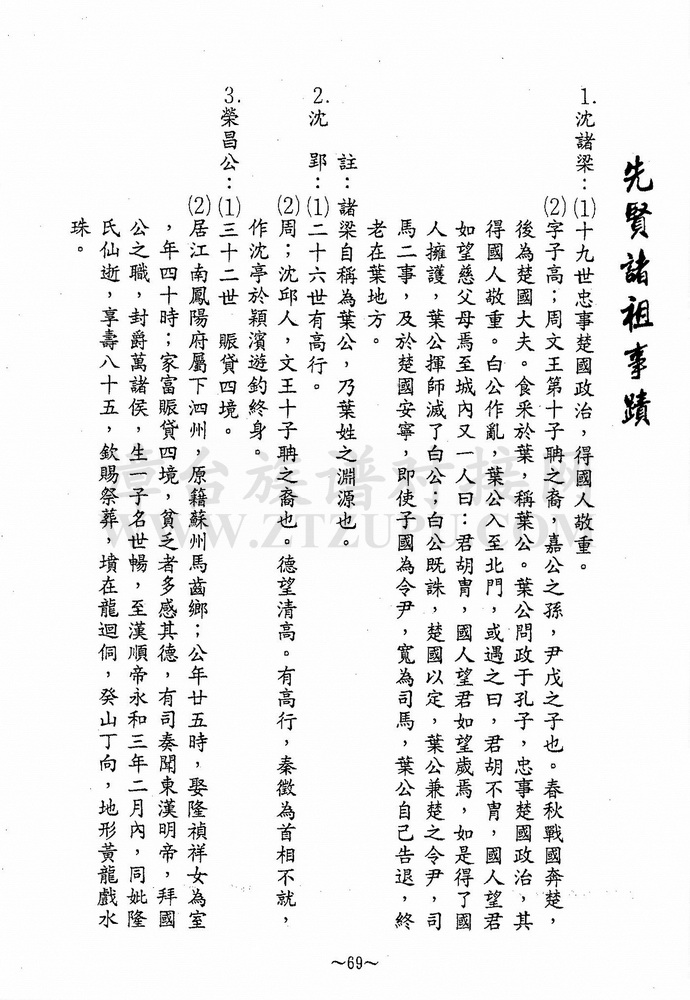 先賢諸祖事蹟
1.沈諸梁：(1)十九世忠事楚國政治，得國人敬重。
(2)字子高；周文王第十子聃之裔，嘉公之孫，尹戊之子也。春秋戰國奔楚，
後為楚國大夫。食采於葉，稱葉公。葉公問政于孔子，忠事楚國政治，其
得國人敬重。白公作亂，葉公入至北門，或遇之曰，君胡不冑，國人望君
如望慈父母焉至城內又一人曰：君胡冑，國人望君如望歲焉，如是得了國
人擁護，葉公揮師滅了白公；白公既誅，楚國以定，葉公兼楚之令尹，司
馬二事，及於楚國安寧，即使子國為令尹，寬為司馬，葉公自己告退，終
老在葉地方。
註：諸梁自稱為葉公，乃葉姓之淵源也。
2.沈　郢：(1)二十六世有高行。
(2)周；沈邱人，文王十子聃之裔也。德望清高。有高行，秦徵為首相不就，
作沈亭於穎濱遊釣終身。
3.榮昌公：(1)三十二世　賑貸四境。
(2)居江南鳳陽府屬下泗州，原籍蘇州馬齒鄉；公年廿五時，娶隆禎祥女為室
，年四十時；家富賑貸四境，貧乏者多感其德，有司奏聞東漢明帝，拜國
公之職，封爵萬諸侯，生一子名世暢，至漢順帝永和三年二月內，同妣隆
氏仙逝，享壽八十五，欽賜祭葬，墳在龍迴侗，癸山丁向，地形黃龍戲水
珠。
～69～
WWW.ZTZUPU.COM